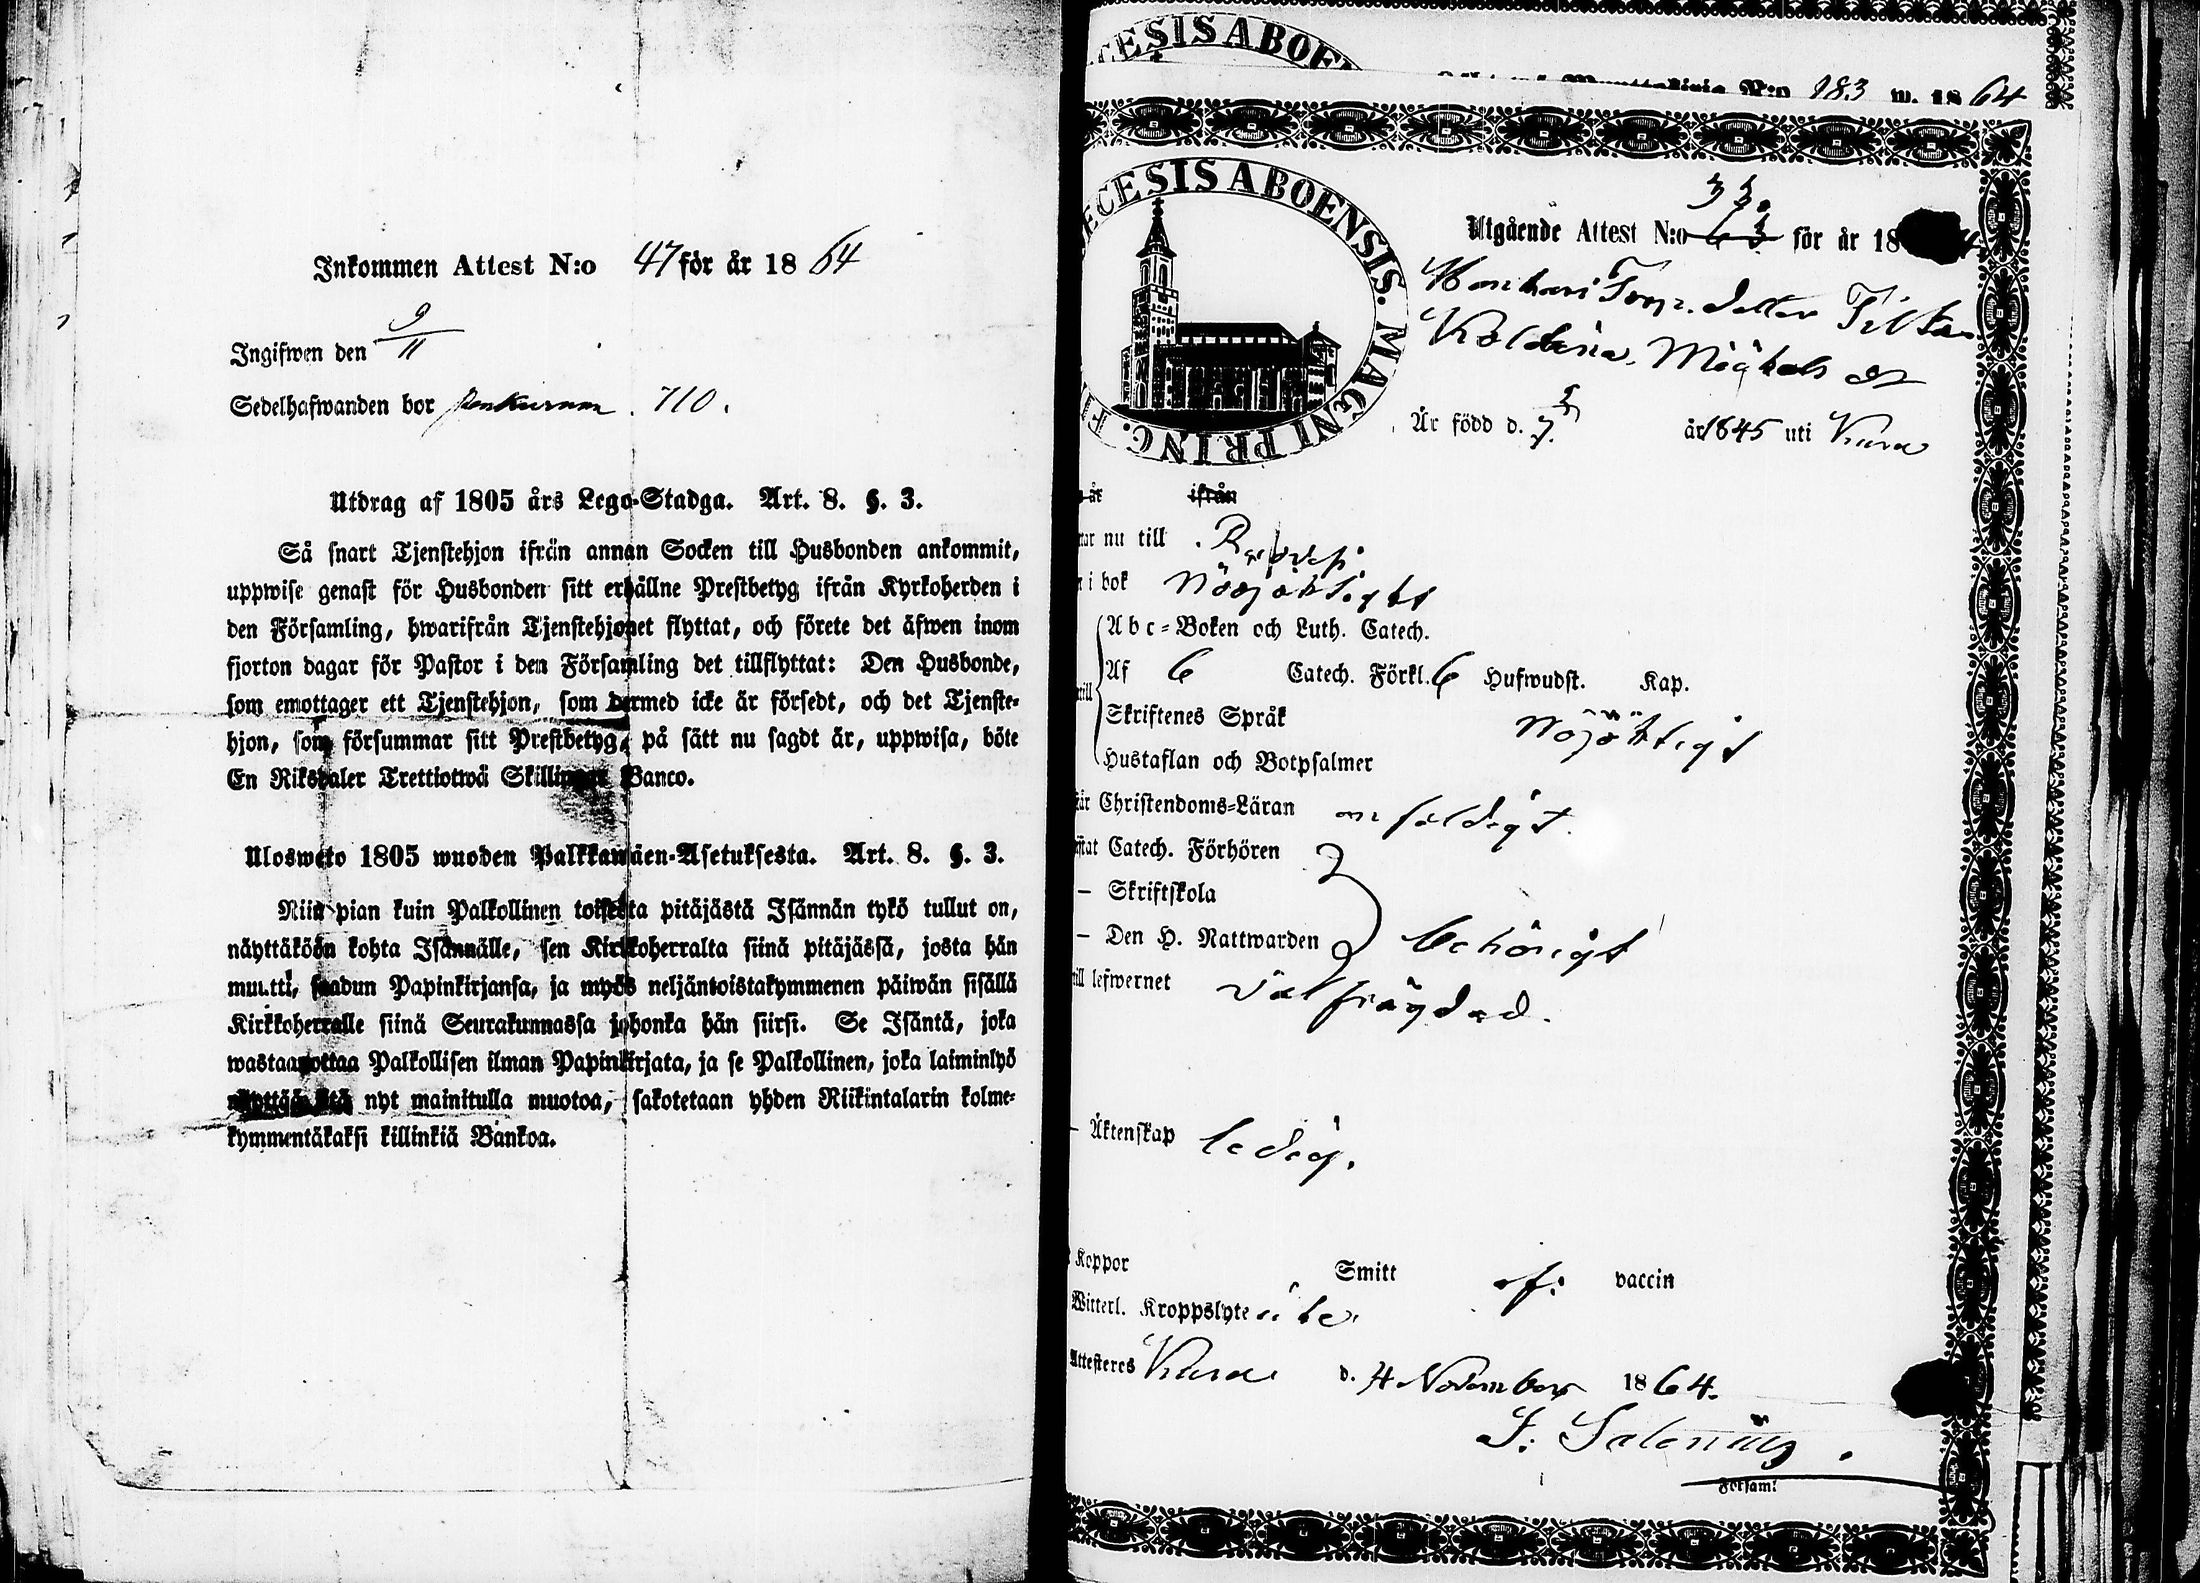 Inkommen Attest N:o 47 för år 1864
Ingifwen den 9/11
Sedelhafwanden bor 710.
Utdrag af 1805 års Lego-Stadga. Art. 8. §. 3.
Så snart Tjenstehjon ifrån annan Socken till Husbonden ankommit,
uppwise genast för Husbonden sitt erhållne Prestbetyg ifrån Kyrkoherden i
den Församling, hwarifrån Tjenstehjonet flyttat, och förete det äfwen inom
fjorton dagar för Pastor i den Församling det tillflyttat: Den Husbonde,
som emottager ett Tjenstehjon, som dermed icke är försedt, och det Tjenste-
hjon, som försummar sitt Prestbetyg, på sätt nu sagdt är, uppwisa, böte
En Riksdaler Trettiotwå Skillingar Banco.
Ulosweto 1805 wuoden Palkkawäen-Asetuksesta. Art. 8. §. 3.
Niin pian kuin Palkollinen toisesta pitäjästä Isännän tykö tullut on,
näyttäköön kohta Isännälle, sen Kirkkoherralta siinä pitäjässä, josta hän
muutti, saadun Papinkirjansa, ja myös neljäntoistakymmenen päiwän sisällä
Kirkkoherralle siinä Seurakunnassa johonka hän siirsi. Se Isäntä, joka
wastaanottaa Palkollisen ilman Papinkirjata, ja se Palkollinen, joka laiminlyö
näyttää sitä nyt mainitulla muotoa, sakotetaan yhden Riikintalarin kolme-
kymmentäkaksi killinkiä Bankoa.
ECESIS ABOEN
N:o 183 w. 1864
ECESIS ABOENSIS. MAGNI PRINC. F
33.
Utgående Attest N:o 63 för år 18 4
Torp. dotter
Är född d. 7 år 1845 uti Kiura
år ifrån
nu till
i bok Nöjöktigt
Abc-Boken och Luth. Catech.
Af 6 Catech. Förkl. 6 Hufwudst. Kap.
Skriftenes Språk Nöjöktigt
Hustaflan och Botpsalmer
Christendoms-Läran enfaldigt.
Catech. Förhören
– Skriftskola
– Den H. Nattwarden behörigt
lefwernet välfrägdad.
– Äktenskap ledig.
Koppor Smitt af: vaccin
Witterl. Kroppslyte
Attesteres Kiura d. 4 November 1864.
Församl